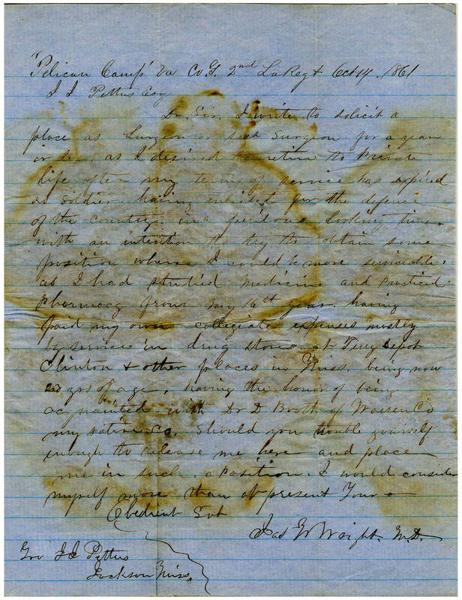 Pelican Camp Va Co G. 2nd La Regt Oct 14, 1861
J J Pettus Esq
Dr Sir, I write to solicit a
place as Surgeon or Asst Surgeon for a year
or as I desire to Private
life after my term of service has expired
as soldier having enlisted for the defense
of the country, in
with an intention to try to obtain some
position where I could be more serviceable,
as I had studied medicine and
Pharmacy from my 16th year, having
paid my own collegiate expenses mostly
by services in drug stores at Terry Depot
Clinton & other places in Miss, being now
23 yrs of age, having the honor of being
acquainted with Dr D Booth of Warren Co
my native Co, Should you trouble yourself
enough to release me here and place
me in such a Position, I would consider
myself more than at present Your
Obedient Svt
Jas W Wright M.D.
Gov J J Pettus
Jackson Miss,